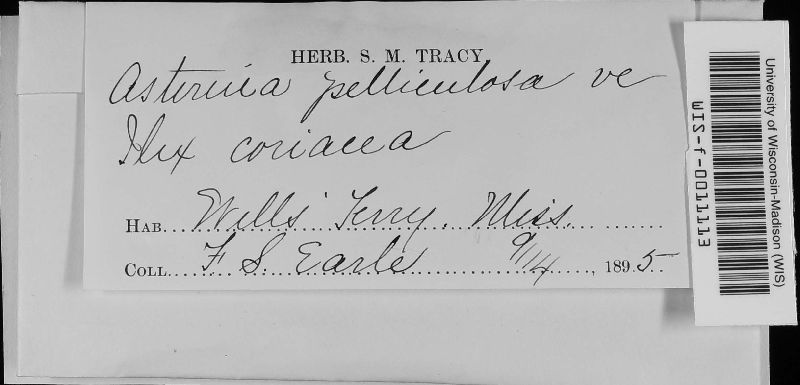 HERB. S. M. TRACY.
Asterina pelliculosa
Ilex coriacea
HAB. Wells' Ferry. Miss.
COLL. F S. Earle 9/14, 1895.
University of Wisconsin-Madison (WIS)
WIS-f-0011113